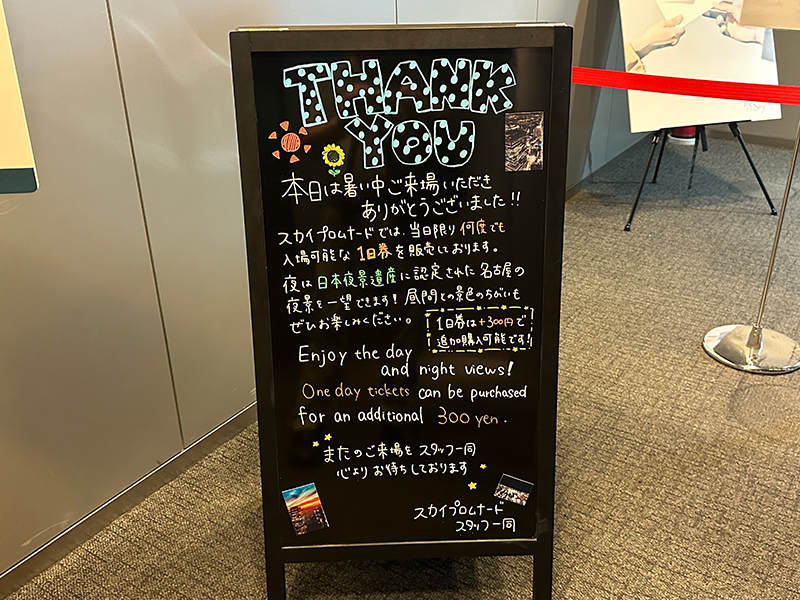 THANK
YOU
本日は暑い中ご来場いただき
ありがとうございました!!
スカイプロムナードでは、当日限り何度でも
入場可能な1日券を販売しております。
夜は日本夜景遺産に認定された名古屋の
夜景を一望できます!昼間との景色のちがいも
ぜひお楽しみください。
1日券は+300円で
追加購入可能です!
Enjoy the day
and night views!
One day tickets can be purchased
for an additional 300 yen.
またのご来場を スタッフ一同
心より お待ちしております
スカイプロムナード
スタッフ一同